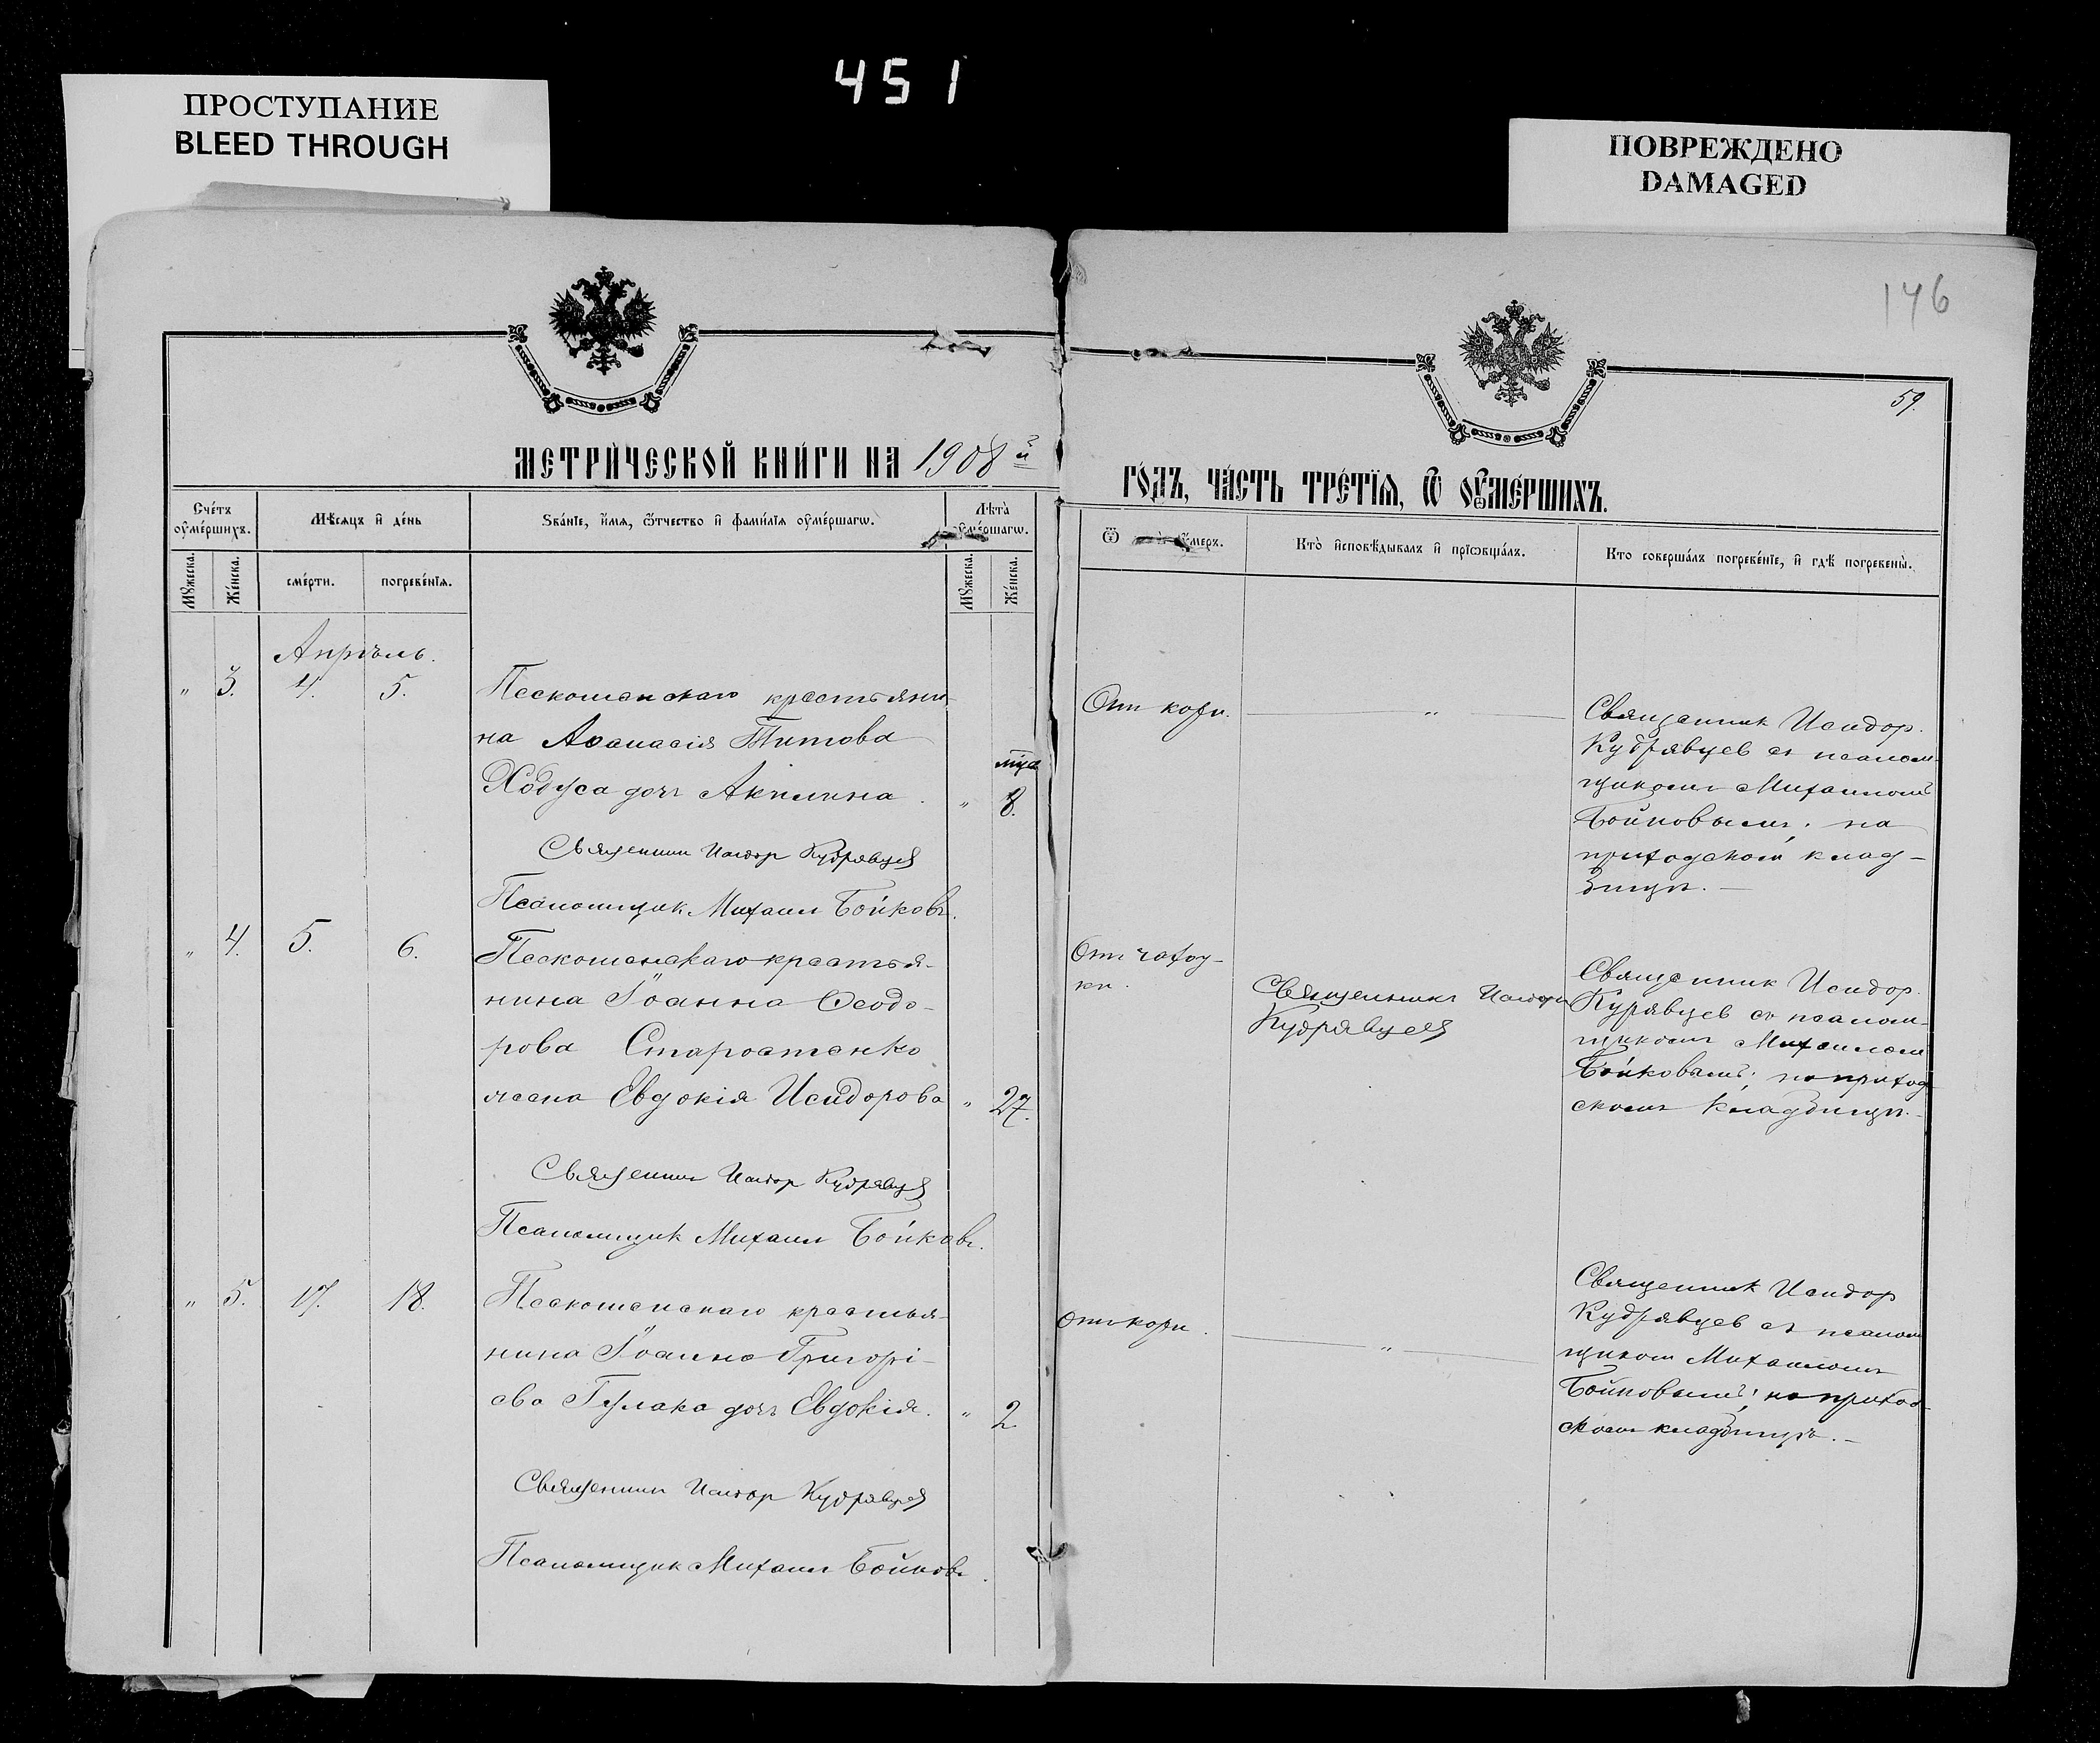 451
ПРОСТУПАНИЕ
BLEED THROUGH
ПОВРЕЖДЕНО
DAMAGED
146
59.
МЕТРИ́ЧЕСКОЙ КНИ́ГИ НА 1908 й
ГО́ДЪ, ЧА́СТЬ ТРЕ́ТЇѦ, Ѿ ОУ҆МЕ́РШИХЪ.
Сче́тъ оу҆ме́ршихъ.
Мѣ́сѧцъ и҆ де́нь
Ѕва́нїе, и҆́мѧ, ѻ҆́тчество и҆ фами́лїѧ оу҆ме́ршагѡ.
Лѣ́та оу҆ме́ршагѡ.
Мꙋ́жеска.
Же́нска.
сме́рти.
погребе́нїѧ.
Мꙋ́жеска.
Же́нска.
Ѿ оу҆́меръ.
Кто̀ и҆сповѣ́дывалъ и҆ прїѡбща́лъ.
Кто̀ соверша́лъ погребе́нїе, и҆ гдѣ̀ погребены̀.
Апрѣль.
" 3. 4. 5.
Пескошанскаго крестьяни-
на Аѳанасія Титова
Ходуса дочь Акилина. " мѣс 8.
Священник Исидор Кудрявцев
Псаломщик Михаил Бойковъ.
От кори.
"
Священник Исидор.
Кудрявцев съ псалом-
щикомъ Михаиломъ
Бойковымъ; на
приходском клад-
бищѣ. —
" 4. 5. 6.
Пескошанскаго крестья-
нина Іоанна Ѳеодо-
рова Старостенко
жена Евдокія Исидорова " 27.
Священник Исидор Кудрявцев
Псаломщик Михаил Бойковъ.
От чахот-
ки.
Священникъ Исидоръ
Кудрявцев
Священник Исидор.
Курявцев съ псалом-
щикомъ Михаилом
Бойковымъ; на приход
скомъ кладбищѣ. –
" 5. 17. 18.
Пескошанскаго крестья-
нина Іоанна Григорі-
ева Гулака дочь Евдокія. " 2
Священник Исидор Кудрявцев
Псаломщик Михаил Бойковъ.
От кори.
"
Священник Исидор
Кудрявцев съ псалом
щиком Михаиломъ
Бойковымъ; на приход-
ском кладбищѣ. –